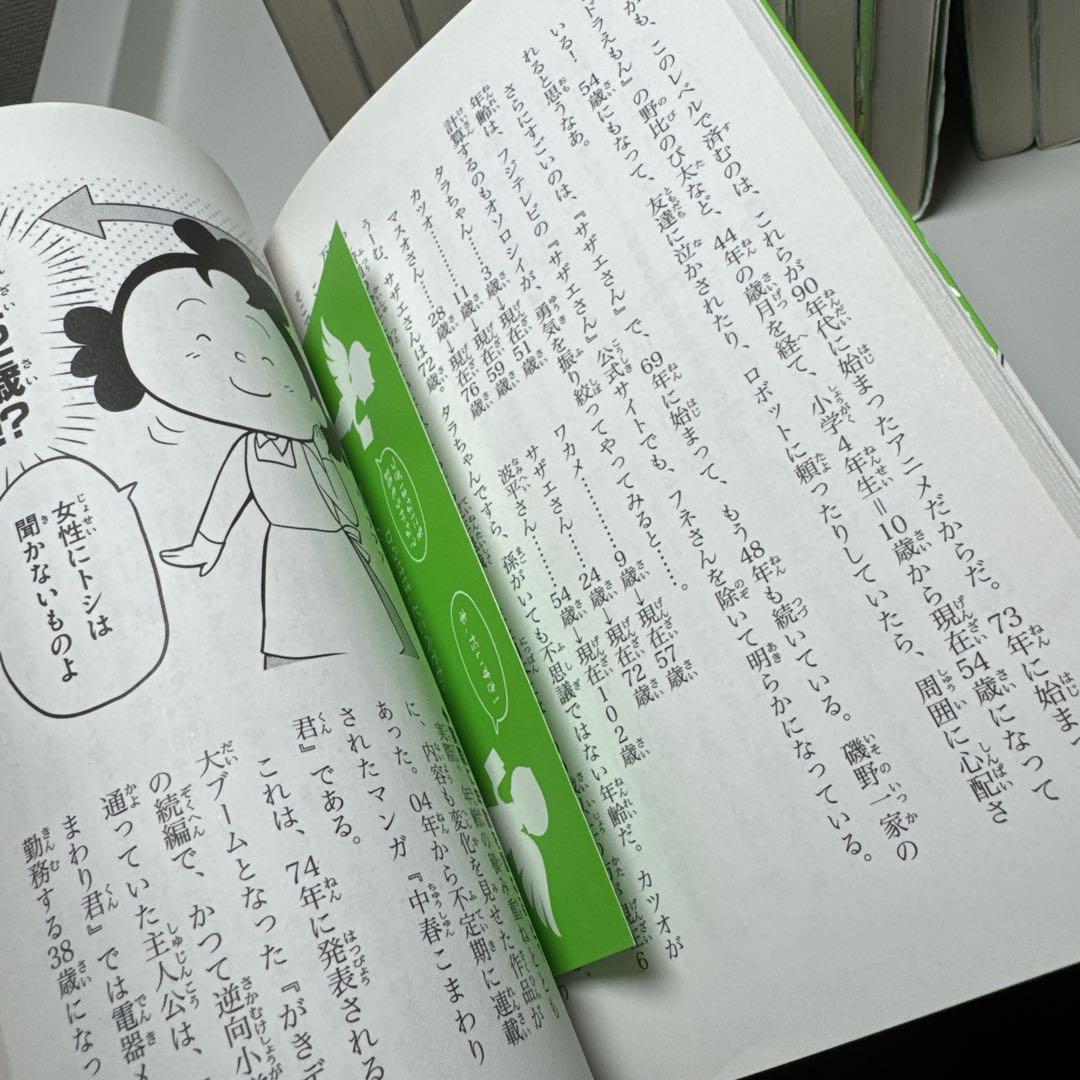 かも、このレベルで済むのは、これらが90年代に始まったアニメだからだ。73年に始まっ
ドラえもん』の野比のび太など、44年の歳月を経て、小学4年生=10歳から現在54歳になって
いる! 54歳にもなって、友達に泣かされたり、ロボットに頼ったりしていたら、周囲に心配さ
れると思うなあ。
さらにすごいのは、『サザエさん』で、69年に始まって、もう48年も続いている。磯野一家の
年齢は、フジテレビの『サザエさん』公式サイトでも、フネさんを除いて明らかになっている。
計算するのもオソロシイが、勇気を振り絞ってやってみると……。
タラちゃん………3歳→現在51歳
ワカメ………9歳→現在57歳
カツオ………11歳→現在59歳
サザエさん………24歳→現在72歳
マスオさん………28歳→現在76歳
波平さん………54歳→現在102歳
うーむ、サザエさんは72歳
タラちゃんですら、孫がいても不思議ではない年齢だ。カツオが
2歳
!?
女性にトシは
聞かないものよ
内容も変化を見せた作品が
に、
あった。04年から不定期に連載
されたマンガ『中春こまわり
君』である。
これは、74年に発表される
大ブームとなった『がきデ
の続編で、かつて逆向小
通っていた主人公は、
まわり君』では電器メ
勤務する38歳になっ